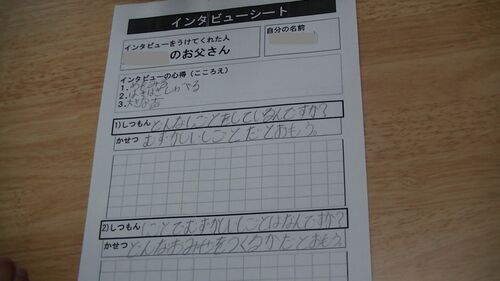 インタビューシート
インタビューをうけてくれた人
のお父さん
自分の名前
インタビューの心得(こころえ)
1.
2.はきはきしゃべる
3.大きな声
1)しつもん どんなしごとをしているんですか?
かせつ むずかしいしごとだとおもう。
2)しつもん しごとでむずかしいしごとはなんですか?
かせつ どんなおみせをつくるかだとおもう。